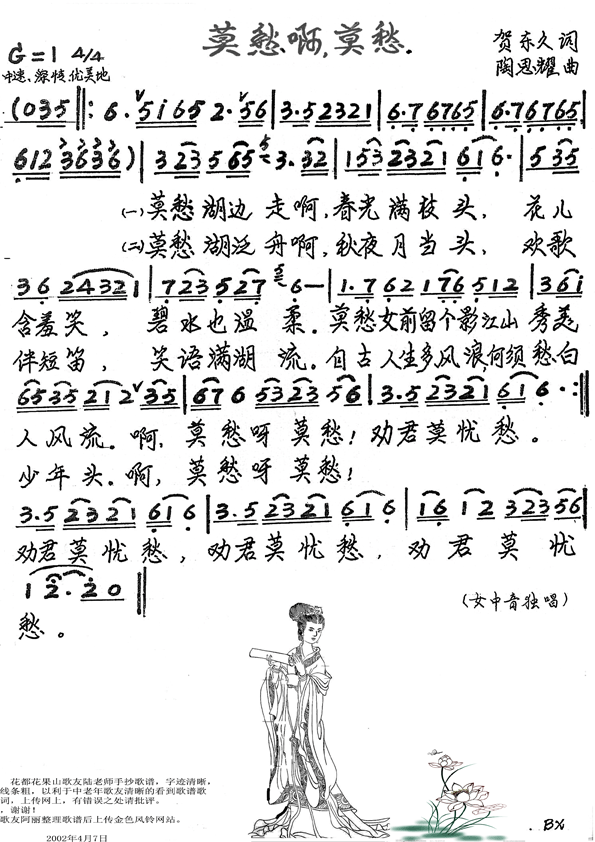 莫愁啊,莫愁.
G=1 4/4
中速、深情、优美地
贺东久词
陶思耀曲
(035‖: 6. 5165 2. 56|3.52321|6.76765|6.76765|
612 3636)|3235 65 3. 32|1532321 616.|5 35
(一)莫愁湖边走啊,春光满枝头,花儿
(二)莫愁湖泛舟啊,秋夜月当头,欢歌
36 24321|723527 6—|1.7 621765 12|361
含羞笑,碧水也温柔。莫愁女前留个影江山秀美
伴短笛,笑语满湖流。自古人生多风浪,何须愁白
6535212 35|676 5323 56|3.52321 616.:‖
人风流。啊,莫愁呀莫愁!劝君莫忧愁。
少年头。啊,莫愁呀莫愁!
3.52321 616|3.52321 616|16 12 32356|
劝君莫忧愁,劝君莫忧愁,劝君莫忧
12.20‖
愁。
(女中音独唱)
花都花果山歌友陆老师手抄歌谱,字迹清晰,
线条粗,以利于中老年歌友清晰的看到歌谱歌
词,上传网上,有错误之处请批评。
,谢谢!
歌友阿丽整理歌谱后上传金色风铃网站。
2002年4月7日